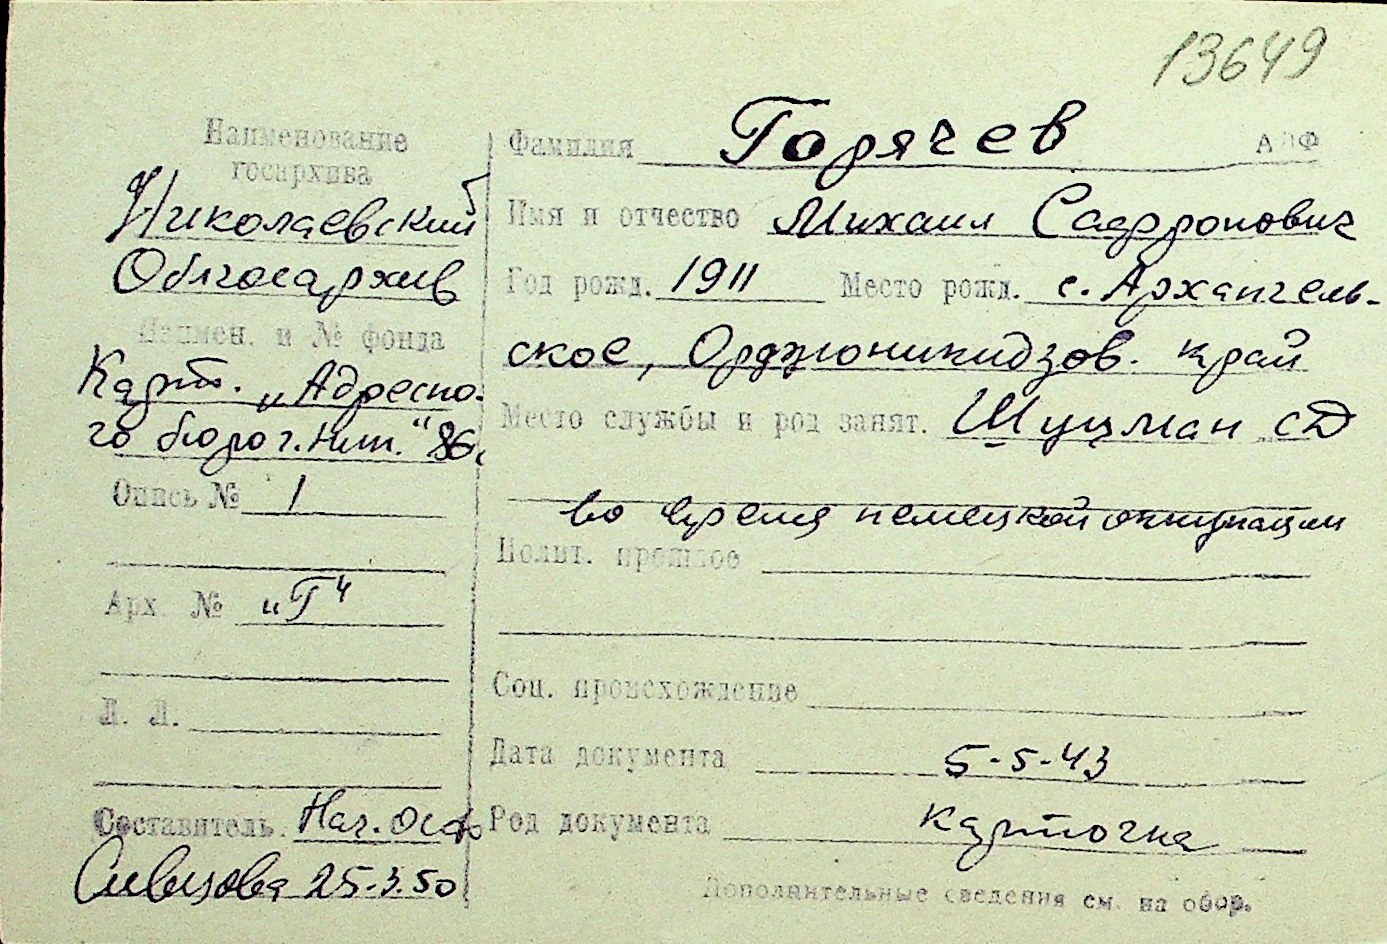 13649
Наименование
госархива
Николаевский
Облгосархив
Наимен. и № фонда
Карт. „Адресно-
го бюро г. Ник.“
Опись № 1
Арх. № „Г“
Л. Л.
Составитель. Нач.
25.3.50
Фамилия Горячев
Имя и отчество Михаил Сафронович
Год рожд. 1911 Место рожд. с. Архангель-
ское, Орджоникидзов. край
Место службы и род занят. Шуцман СД
во время немецкой оккупации
Полит. прошлое
Соц. происхождение
Дата документа 5-5-43
Род документа карточка
Дополнительные сведения см. на обор.